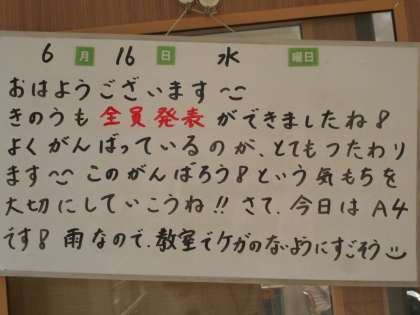 6月16日 水曜日
おはようございます〜
きのうも全員発表ができましたね!
よくがんばっているのが、とてもつたわり
ます〜 このがんばろう!という気もちを
大切にしていこうね!! さて、今日はA4
です! 雨なので、教室でケガのないようにすごそう